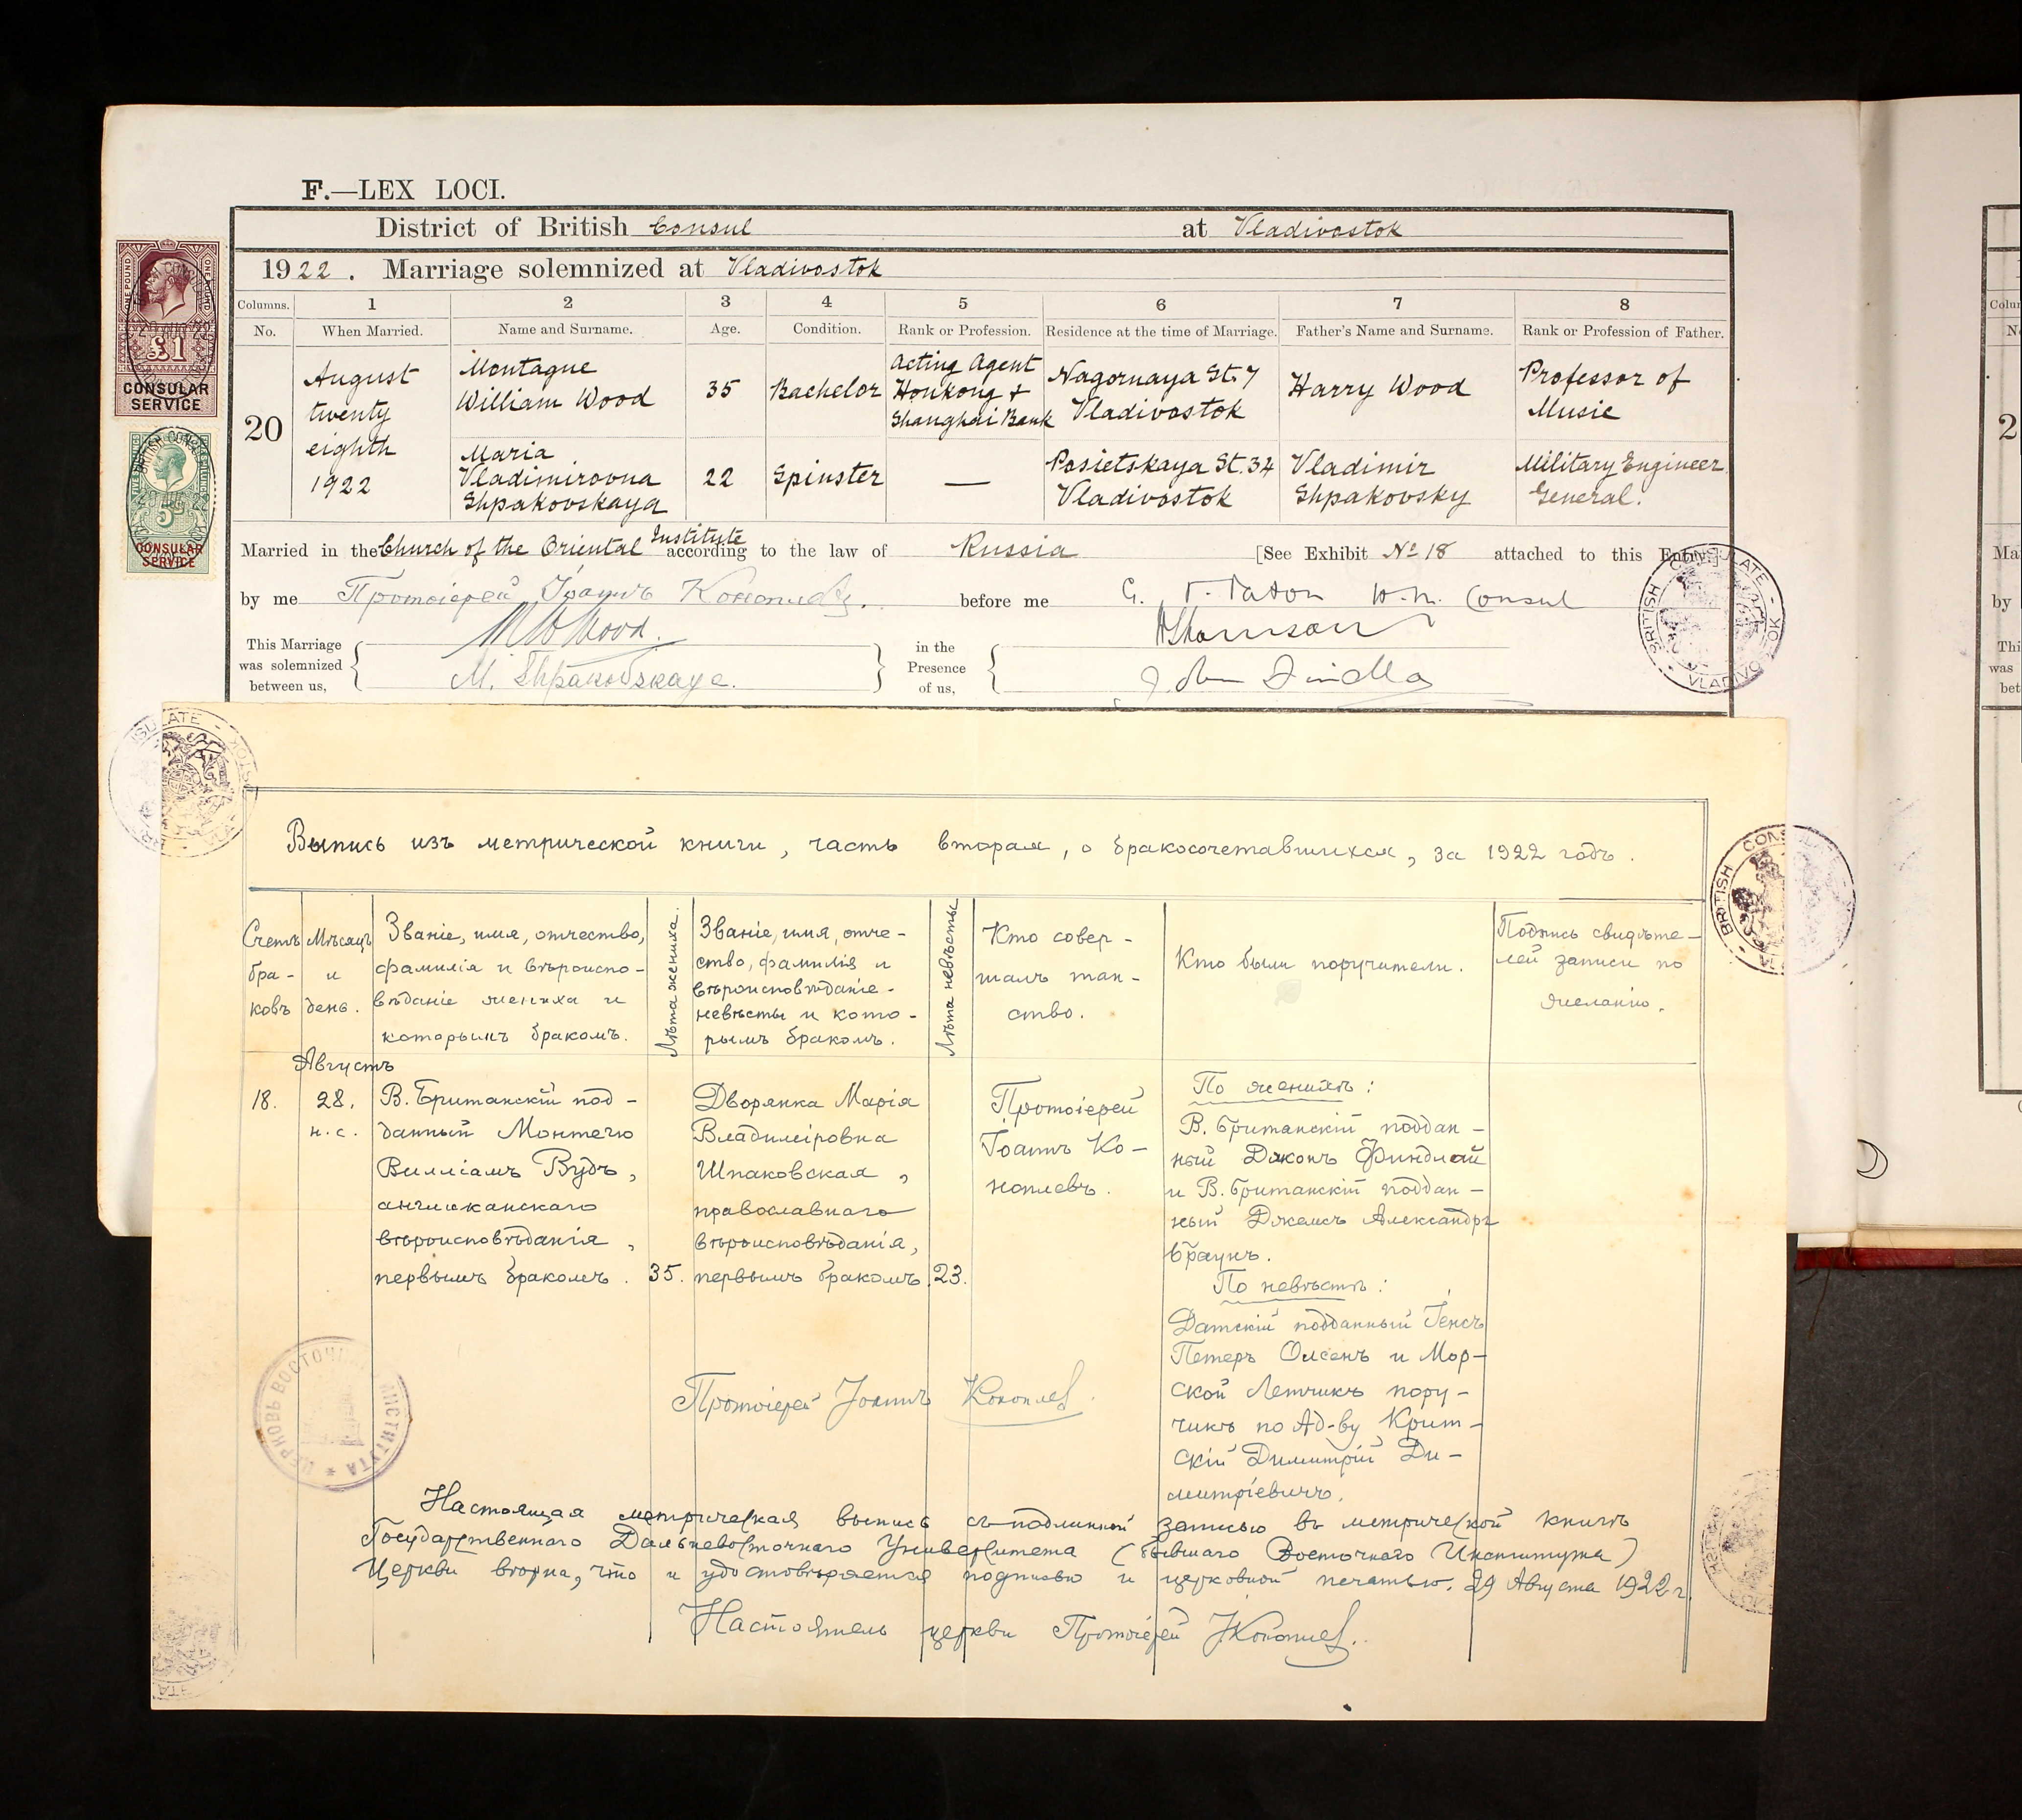 F.—LEX LOCI.
District of British Consul at Vladivostok
1922. Marriage solemnized at Vladivostok
Columns. 1 2 3 4 5 6 7 8
No. When Married. Name and Surname. Age. Condition. Rank or Profession. Residence at the time of Marriage. Father's Name and Surname. Rank or Profession of Father.
20
August
twenty
eighth
1922
Montague
William Wood
35
Bachelor
Acting Agent
Honkong &
Shanghai Bank
Nagornaya St. 7
Vladivostok
Harry Wood
Professor of
Music
Maria
Vladimirovna
Shpakovskaya
22
Spinster
—
Posietskaya St. 34
Vladivostok
Vladimir
Shpakovsky
Military Engineer
General.
Married in the Church of the Oriental Institute according to the law of Russia [See Exhibit № 18 attached to this Entry.]
by me Протоіерей Іоаннъ Коноплевъ. before me G. H.M. Consul
This Marriage
was solemnized
between us,
MWWood.
M. Shpakovskaya.
in the
Presence
of us,
John Findlay
ONE POUND
£1
CONSULAR
SERVICE
5s
CONSULAR
SERVICE
BRITISH CONSULATE - VLADIVOSTOK
Выпись изъ метрической книги, часть вторая, о бракосочетавшихся, за 1922 годъ.
Счетъ
бра-
ковъ
Мѣсяцъ
и
день.
Званіе, имя, отчество,
фамилія и вѣроиспо-
вѣданіе жениха и
которымъ бракомъ.
Лѣта жениха.
Званіе, имя, отче-
ство, фамилія и
вѣроисповѣданіе
невѣсты и кото-
рымъ бракомъ.
Лѣта невѣсты
Кто совер-
шалъ таи-
ство.
Кто были поручители.
Подпись свидѣте-
лей записи по
желанію.
Августъ
18.
28.
н. с.
В. Британскій под-
данный Монтегю
Вилліамъ Вудъ,
англиканскаго
вѣроисповѣданія,
первымъ бракомъ.
35.
Дворянка Марія
Владиміровна
Шпаковская,
православнаго
вѣроисповѣданія,
первымъ бракомъ.
23.
Протоіерей
Іоаннъ Ко-
ноплевъ.
По женихѣ:
В. Британскій поддан-
ный Джонъ Финдлай
и В. Британскій поддан-
ный Джемсъ Александръ
Браунъ.
По невѣстѣ:
Датскій подданный Іенсъ
Петеръ Олсенъ и Мор-
ской Летчикъ пору-
чикъ по Ад-ву Крит-
скій Димитрій Ди-
митріевичъ.
Протоіерей Іоаннъ Коноплев.
ЦЕРКОВЬ ВОСТОЧН ИНСТИТУТА
Настоящая метрическая выпись съ подлинной записью въ метрической книгѣ
Государственнаго Дальневосточнаго Университета (бывшаго Восточнаго Института)
Церкви вѣрна, что и удостовѣряется подписью и церковной печатью. 29 Августа 1922 г.
Настоятель церкви Протоіерей І. Коноплев.